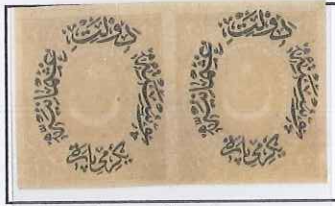 دولت
عثمانيه
بوستهسى
يكرمى پاره
دولت
عثمانيه
بوستهسى
يكرمى پاره